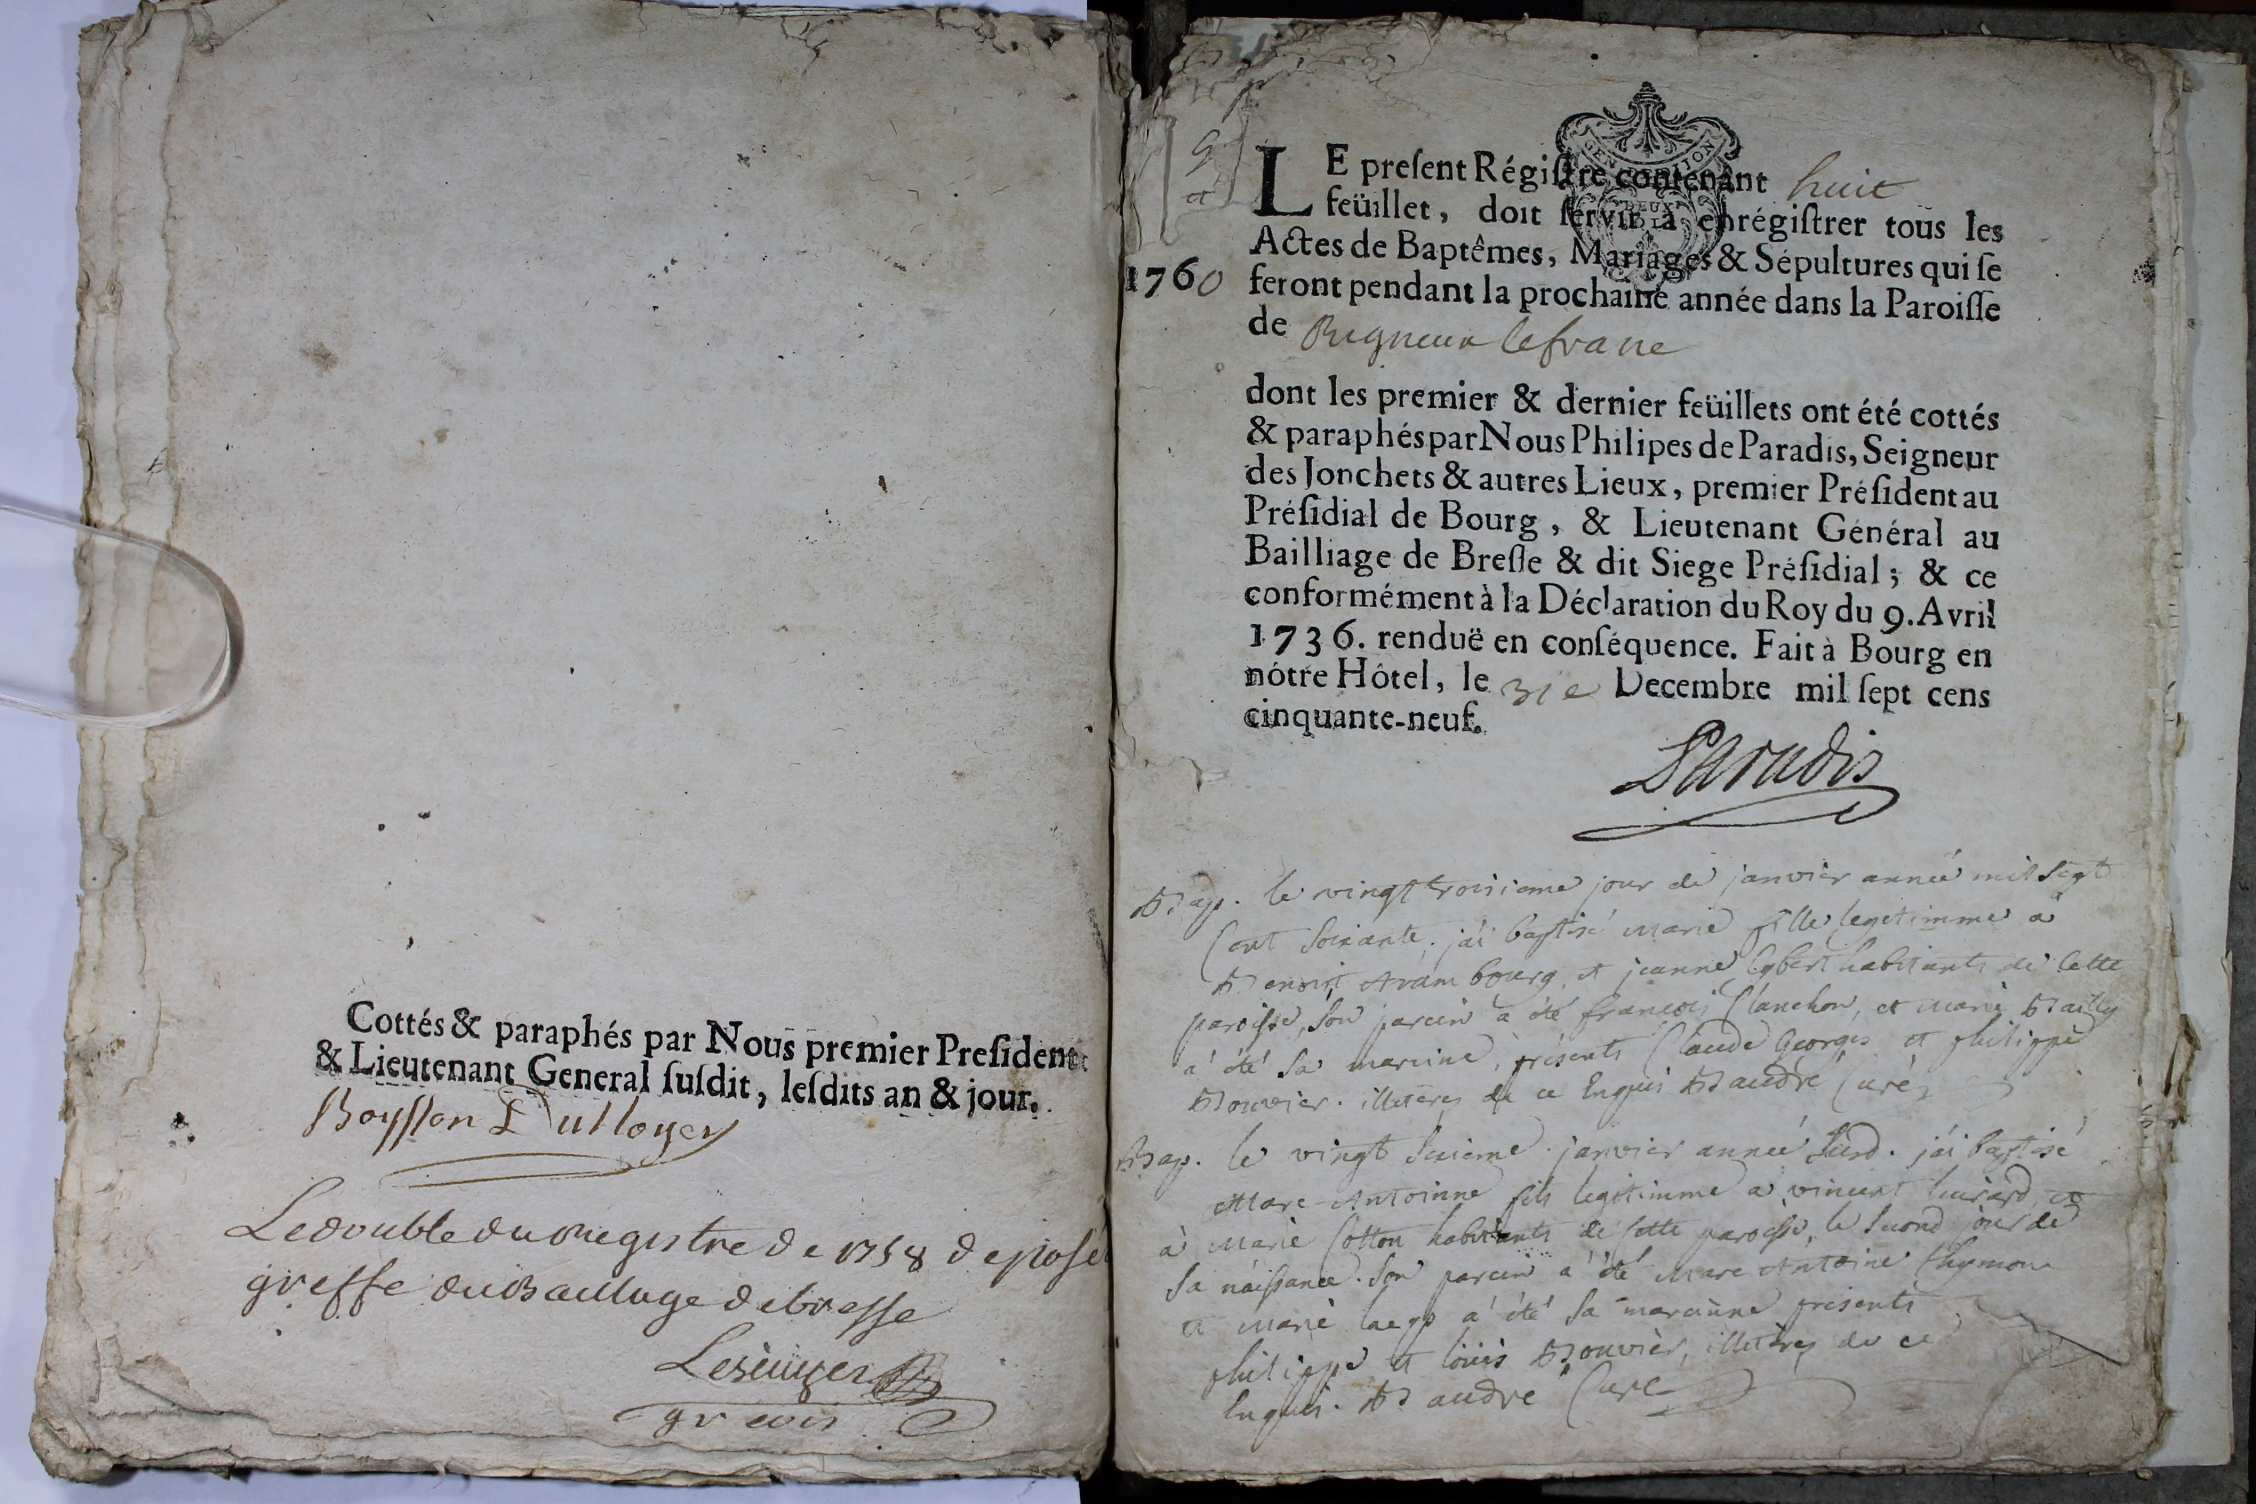 Cottés & paraphés par Nous premier President
& Lieutenant General ſuſdit, leſdits an & jour.
Le double du Registre de 1758 deposé
greffe du Bailliage de bresse
LE preſent Régiſtre contenant huit
feüillet, doit ſervir à enrégiſtrer tous les
Actes de Baptêmes, Mariages & Sépultures qui ſe
1760 feront pendant la prochaine année dans la Paroiſſe
de Rigneux lefranc
dont les premier & dernier feüillets ont été cottés
& paraphés par Nous Philipes de Paradis, Seigneur
des Jonchets & autres Lieux, premier Préſident au
Préſidial de Bourg, & Lieutenant Général au
Bailliage de Breſſe & dit Siege Préſidial; & ce
conformément à la Déclaration du Roy du 9. Avril
1736. renduë en conſéquence. Fait à Bourg en
nôtre Hôtel, le 31e Decembre mil ſept cens
cinquante-neuf.
Paradis
Bap. le vingt troisieme jour de janvier année mil sept
Cent soixante, j'ai baptisé marie fille legitimme à
Benoit Arambourg, et jeanne habitants de Cette
paroisse, son parein a été françois Planchon, et marie Bailly
a été sa mareine, présents Claude Georges et philippe
Bouvier. illiteres de ce Enquis Baudré Curé
Bap. le vingt sixieme janvier année susd. j'ai baptisé
Marc-Antoinne fils legitimme a vincent et
à Marie Cotton habitants de Cette paroisse, le second jour de
sa naissance. Son parein a été Marc Antoine
et marie a été sa mareinne présents
philippe et loüis Bouvier, illiteres de ce
Enquis. Baudré Curé